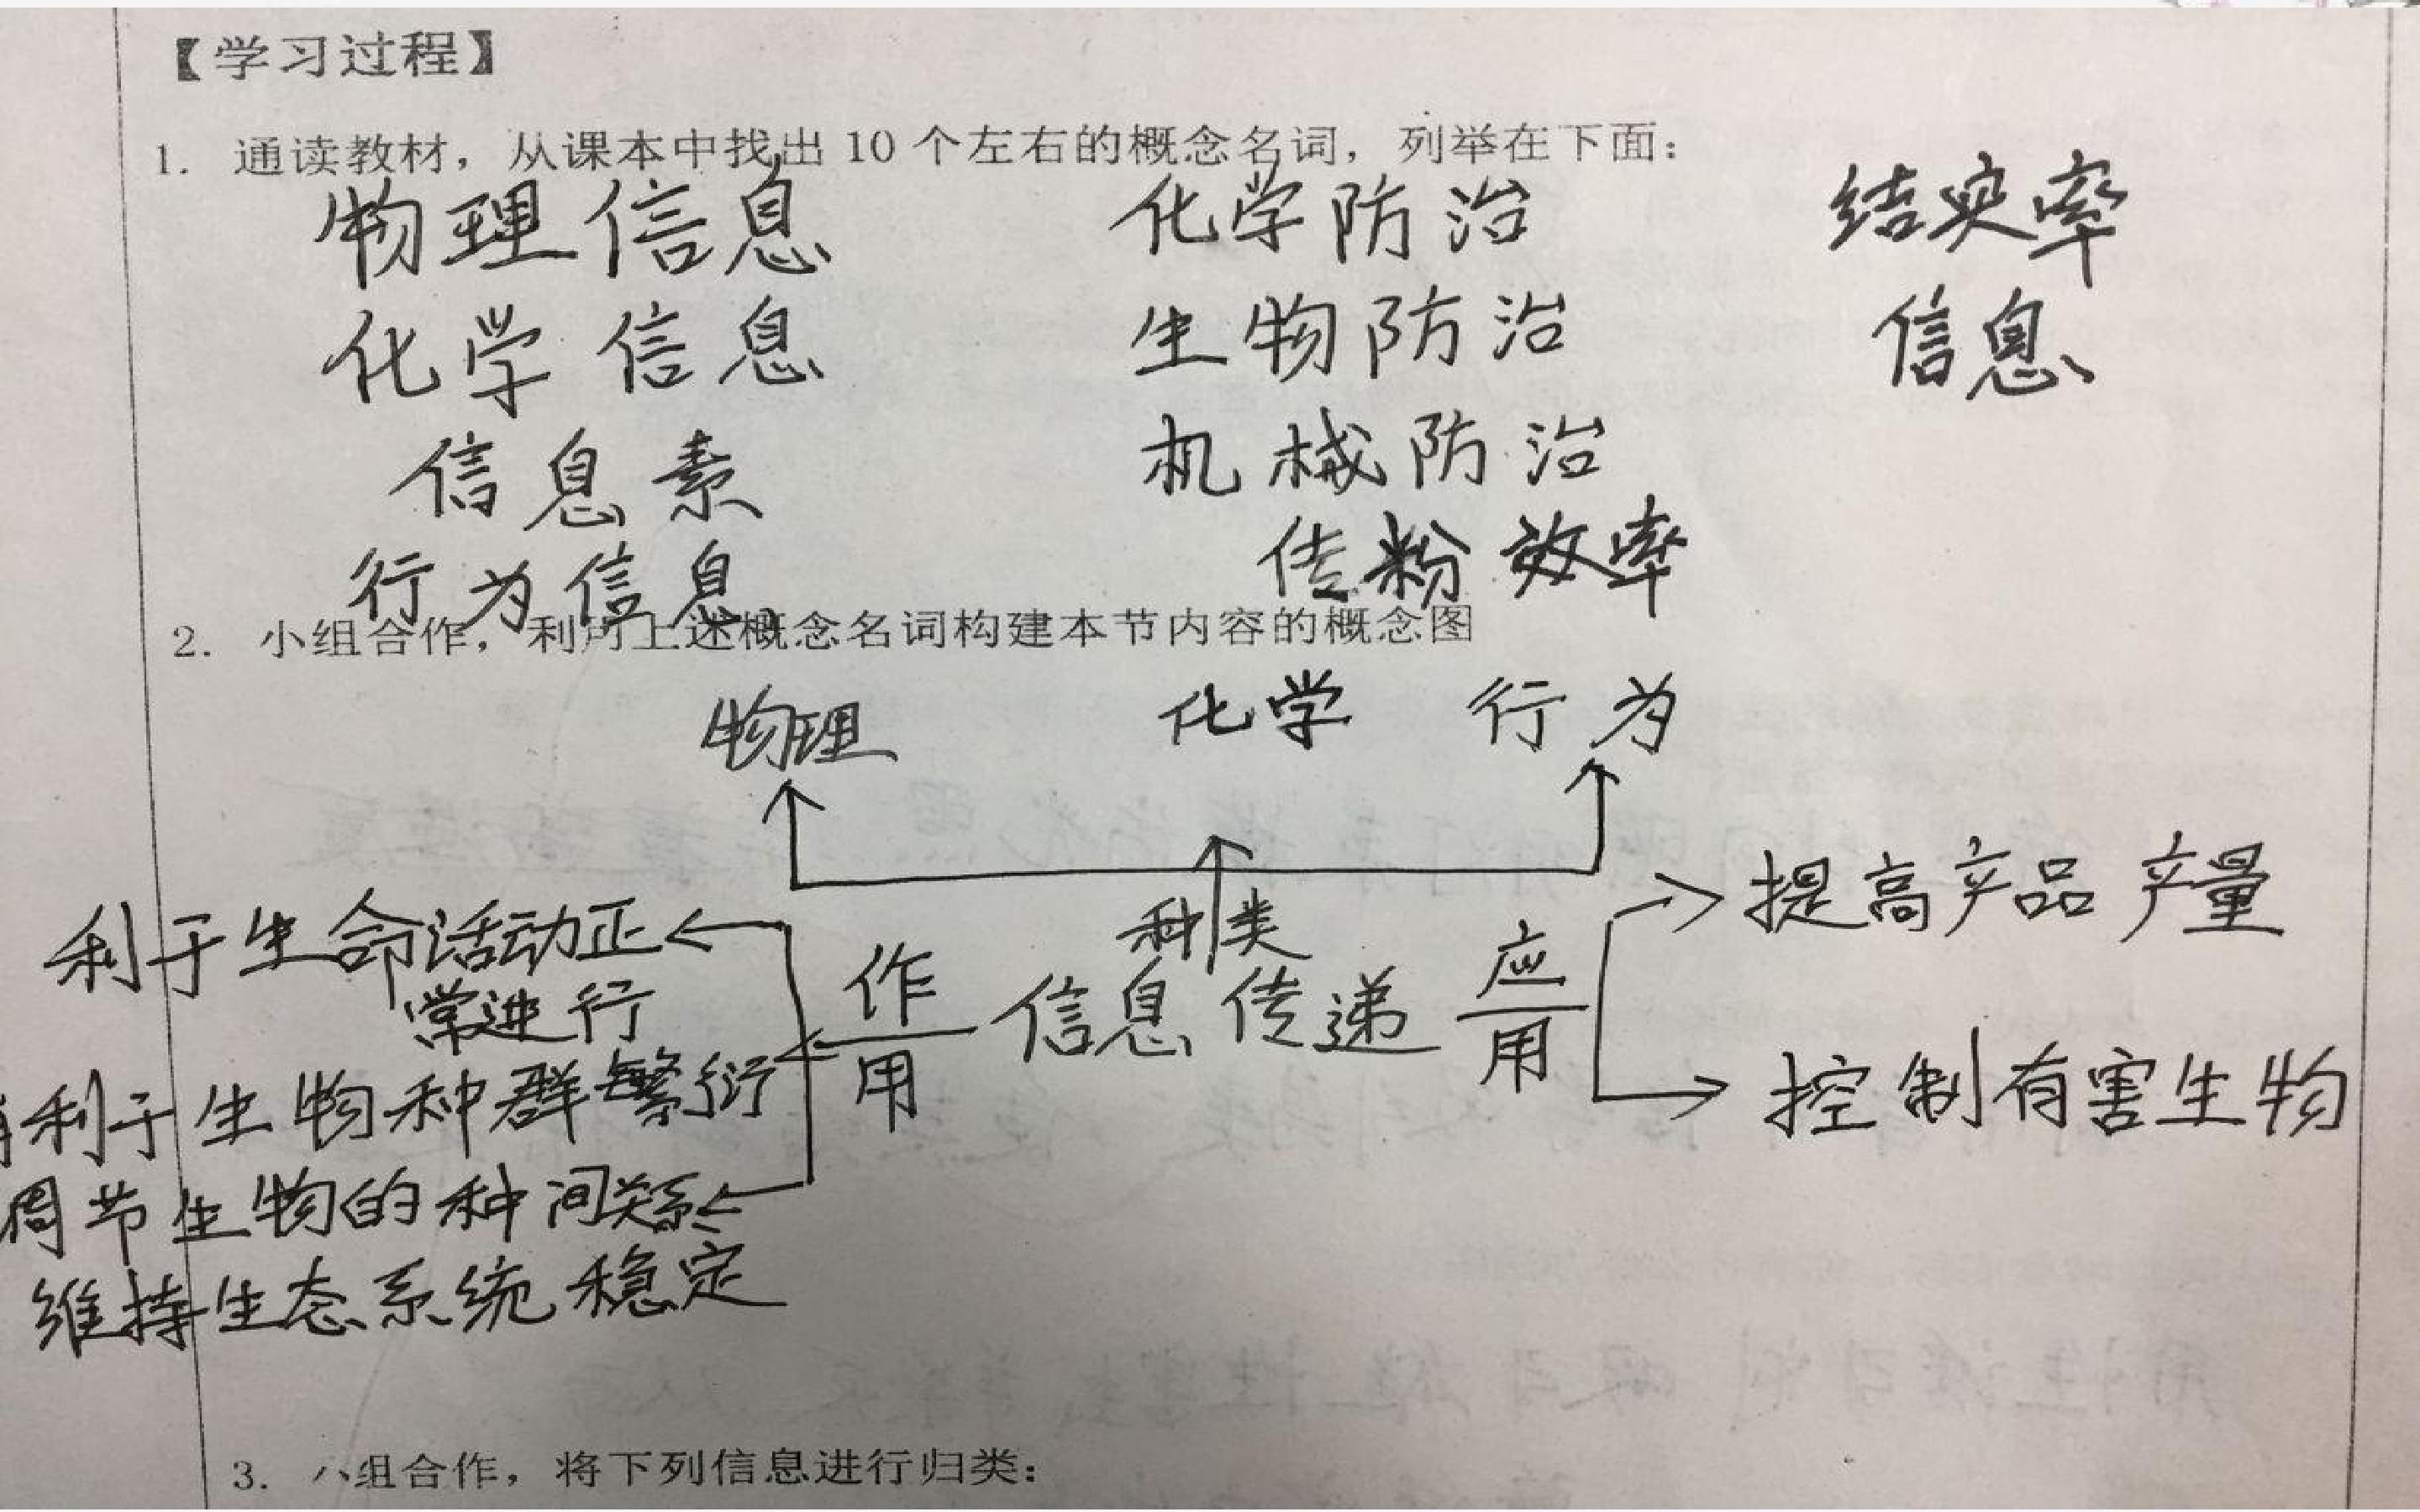 【学习过程】
1. 通读教材，从课本中找出 10 个左右的概念名词，列举在下面：
物理信息 化学防治 结实率
化学信息 生物防治 信息
信息素 机械防治
行为信息 传粉效率
2. 小组合作，利用上述概念名词构建本节内容的概念图
物理 化学 行为
利于生命活动正
常进行
利于生物种群繁衍
调节生物的种间关系
维持生态系统稳定
作用
种类
信息传递
应用
提高产品产量
控制有害生物
3. 小组合作，将下列信息进行归类：